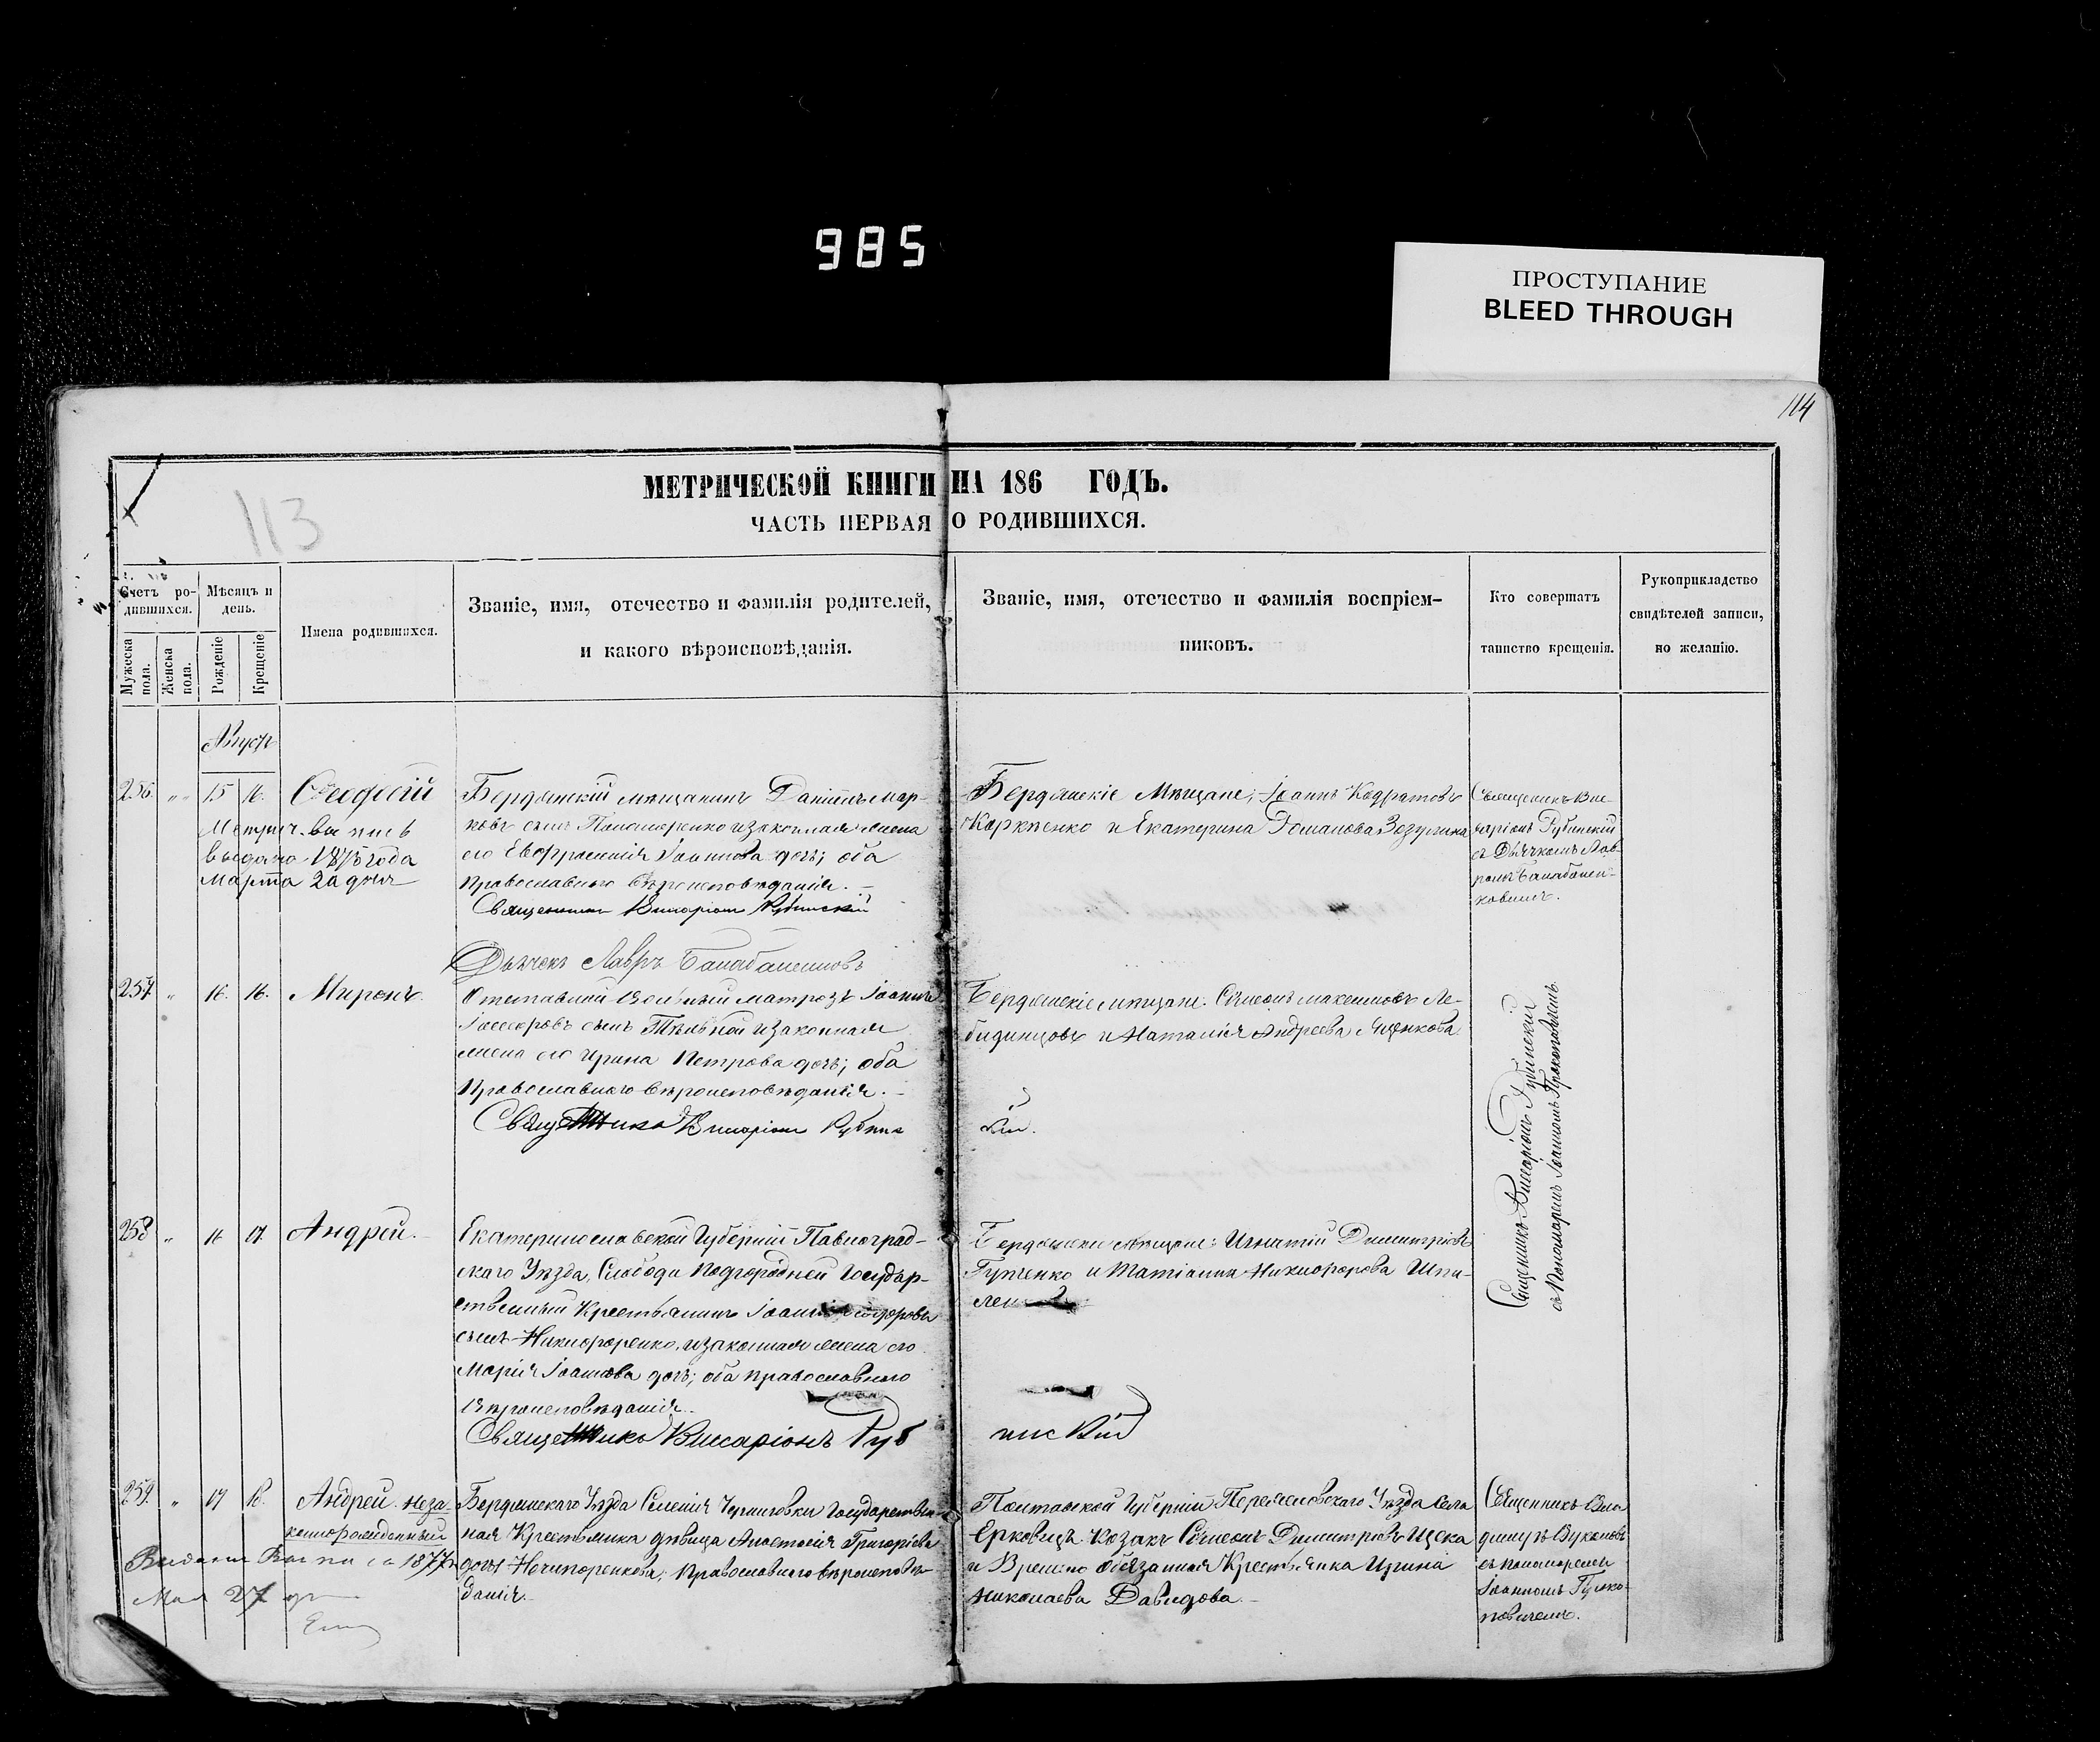 985
ПРОСТУПАНИЕ
BLEED THROUGH
114
113
МЕТРИЧЕСКОЙ КНИГИ НА 186 ГОДЪ.
ЧАСТЬ ПЕРВАЯ О РОДИВШИХСЯ.
Счетъ ро-
дившихся.
Мужеска пола.
Женска пола.
Мѣсяцъ и
день.
Рожденіе
Крещеніе
Имена родившихся.
Званіе, имя, отечество и фамилія родителей,
и какого вѣроисповѣданія.
Званіе, имя, отечество и фамилія воспріем-
никовъ.
Кто совершатъ
таинство крещенія.
Рукоприкладство
свидѣтелей записи,
но желанію.
Августъ
256. " 15 16. Ѳеодосій
Метрич. вы пись
выдана 1875 года
Марта 2а дня
Бердянскій мѣщанинъ Даніилъ Мар-
ковъ сынъ Пономаренко и законная жена
его Евфросинія Іоаннова дочь; оба
православнаго вѣроисповѣданія.
Священникъ Виссаріонъ Рубинскій
Дьячекъ Лавръ
Бердянскіе Мѣщане; Іоаннъ Кодратовъ
и Екатерина Зозулина
Священникъ Вис-
саріонъ Рубинскій
съ Дьячкомъ Лав-
257. " 16. 16. Миронъ.
Отставной матрозъ Іоаннъ
сынъ и законная
жена его Ирина Петрова дочь; оба
Православнаго вѣроисповѣданія.
Священникъ Виссаріонъ Рубинс
кій.
Бердянскіе мѣщане: Сѵмеонъ Максимовъ Ле-
бидинцовъ и Наталія Андреева Яценкова
Священникъ Виссаріонъ Рубинскій
съ Пономаремъ Іоанномъ Прокоповичемъ
258 " 16 17. Андрей.
Екатеринославской Губерніи Павлоград-
скаго Уѣзда, Слободи Подгородней Государ-
ственный Крестьянинъ Іоаннъ
сынъ Никифоренко, и законная жена его
Марія Іоаннова дочь; оба православнаго
вѣроисповѣданія.
Священникъ Виссаріонъ Руб
инскій
Бердянскіе Мѣщане: Игнатій Димитріевъ
и Татіанна Никифорова
259. " 17 18. Андрей. неза-
коннорожденный
Выдана 1877
Мая 27
Бердянскаго Уѣзда Селенія Черниговки Государствен-
ная Крестьянка дѣвица Анастасія Григоріева
дочь Нечипоренкова; Православнаго вѣроисповѣ-
данія.
Полтавской Губерніи Переяславскаго Уѣзда села
Ерковецъ Козакъ Сѵмеонъ Димитріевъ
и Временно обязанная Крестьянка Ирина
Николаева Давидова.
Священникъ Вла
димиръ
съ пономаремъ
Іоанномъ